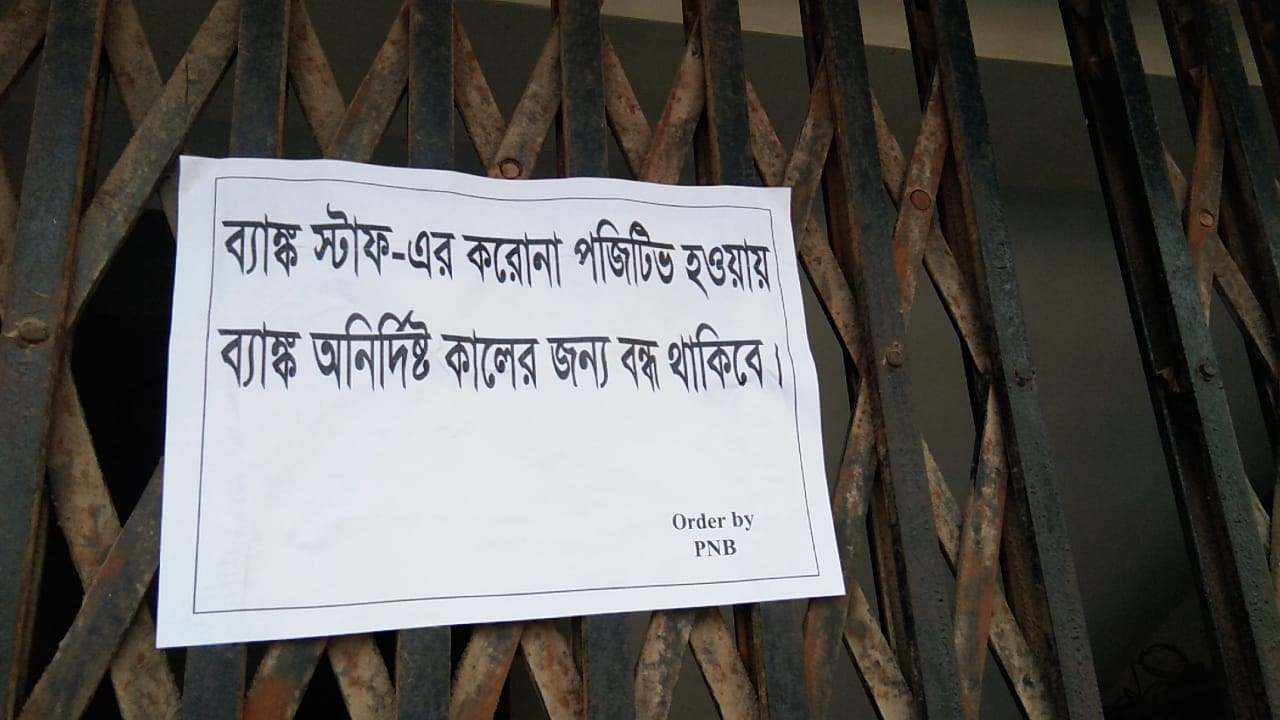 ব্যাঙ্ক স্টাফ-এর করোনা পজিটিভ হওয়ায়
ব্যাঙ্ক অনির্দিষ্ট কালের জন্য বন্ধ থাকিবে।
Order by
PNB